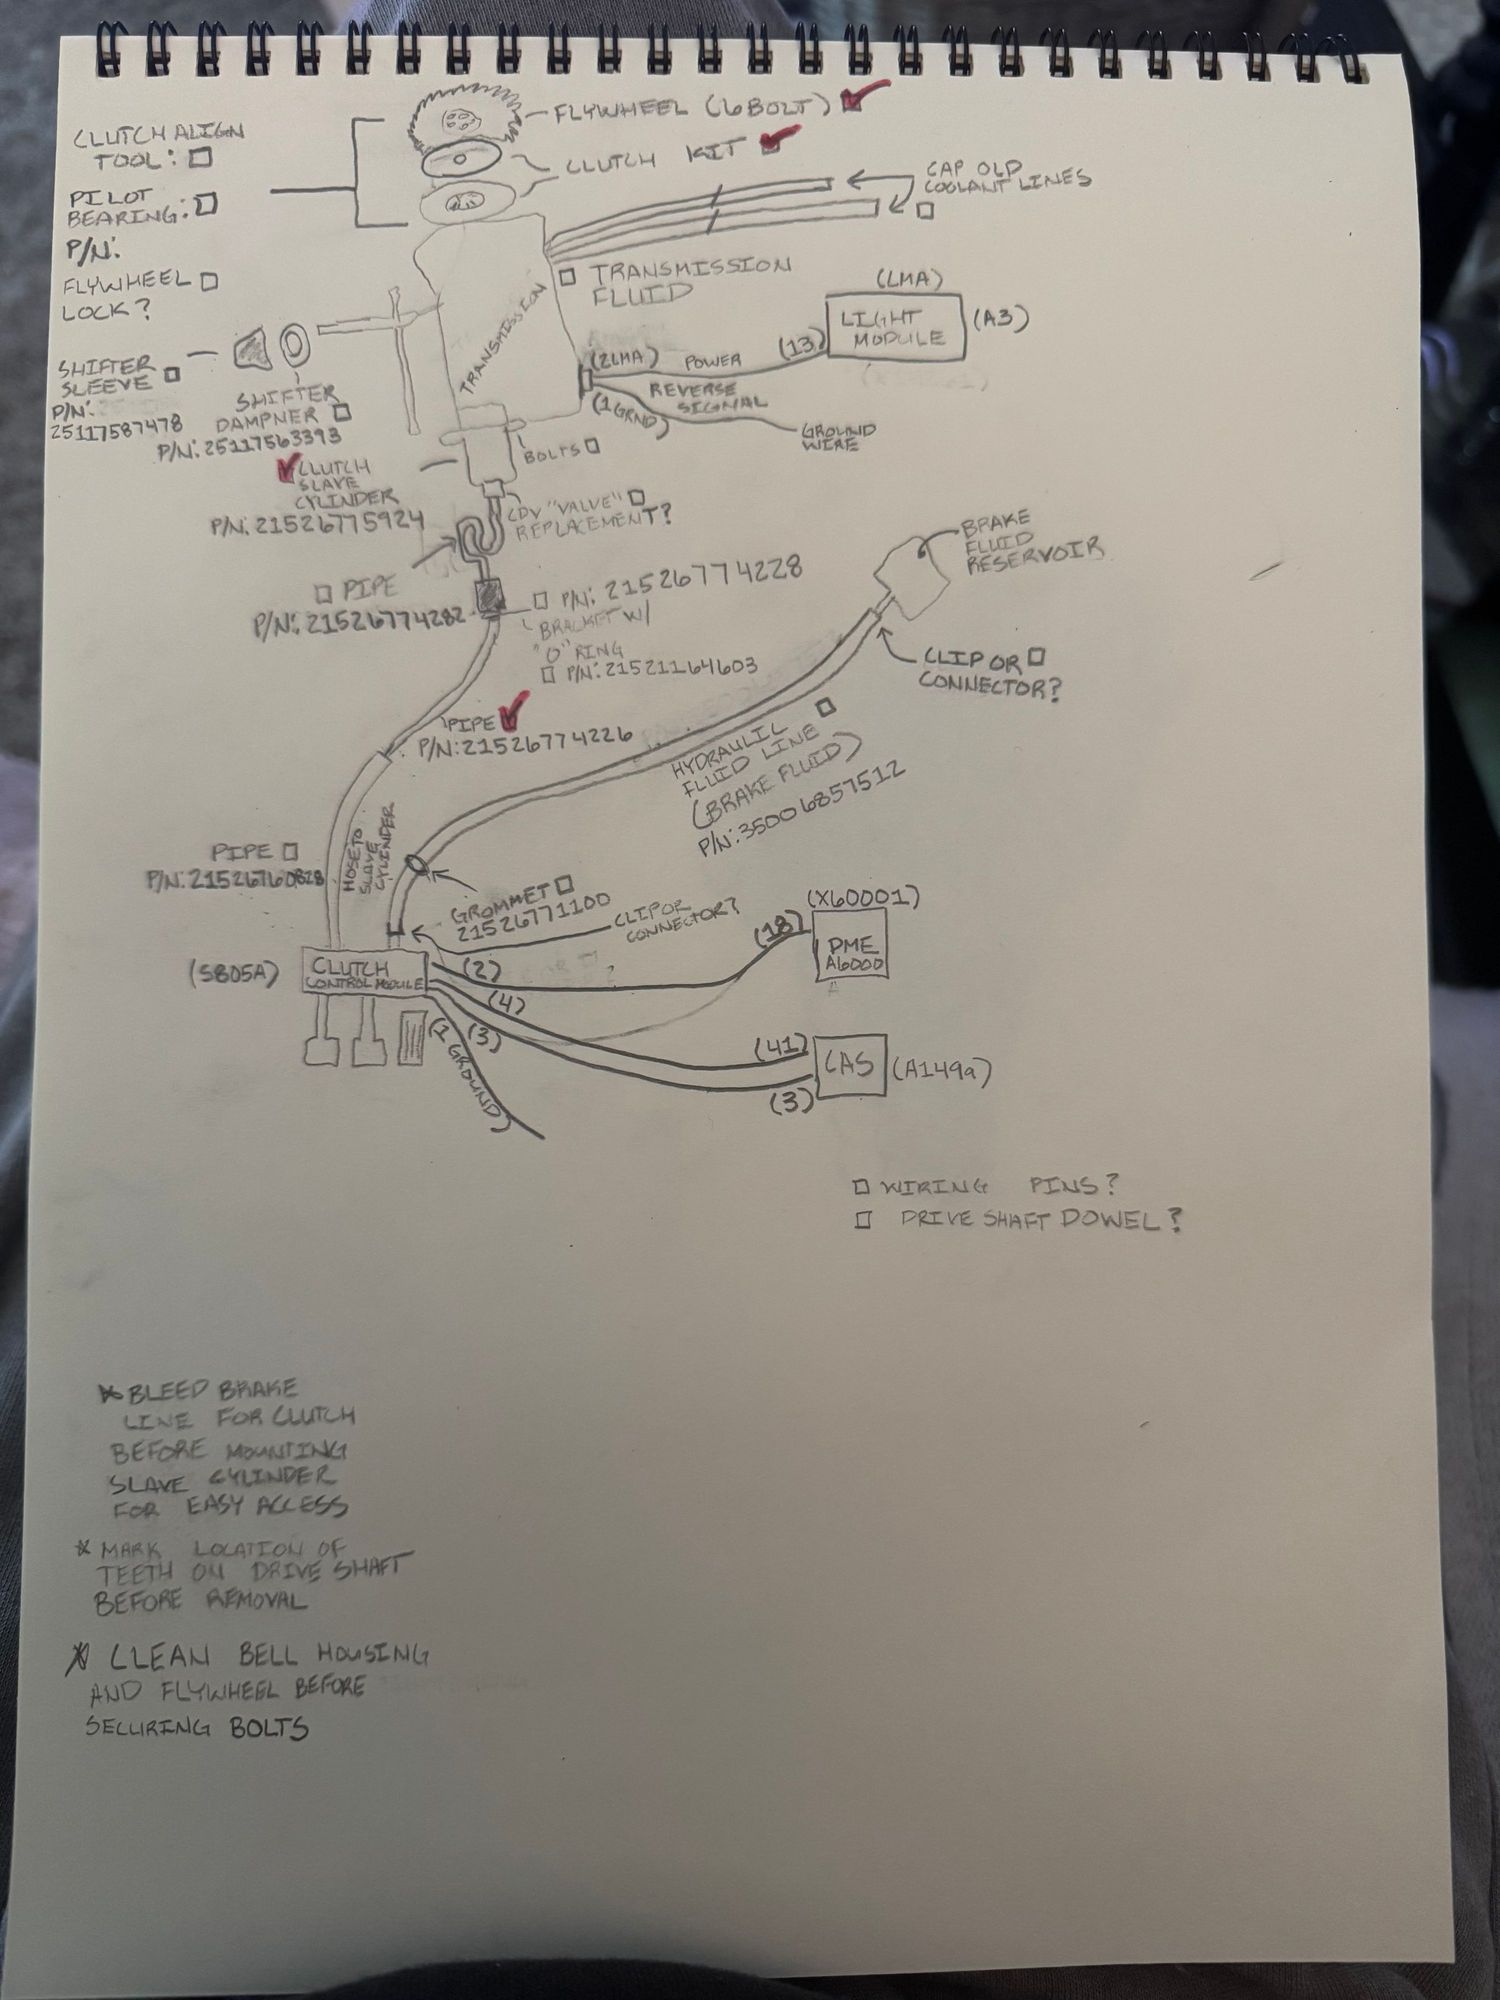 FLYWHEEL (6 BOLT)
CLUTCH KIT
CLUTCH ALIGN
TOOL:
PILOT
BEARING:
P/N:
FLYWHEEL
LOCK?
CAP OLD
COOLANT LINES
TRANSMISSION
FLUID
TRANSMISSION
(LMA)
LIGHT
MODULE
(A3)
(13)
(2LMA) POWER
REVERSE
SIGNAL
(1 GRND)
GROUND
WIRE
SHIFTER
SLEEVE
P/N:
25117587478
SHIFTER
DAMPNER
P/N: 25117563393
BOLTS
CLUTCH
SLAVE
CYLINDER
P/N: 21526775924
CDV "VALVE"
REPLACEMENT?
PIPE
P/N: 21526774282
P/N: 21526774228
BRACKET W/
"O" RING
P/N: 21521164603
BRAKE
FLUID
RESERVOIR
CLIP OR
CONNECTOR?
PIPE
P/N: 21526774226
HYDRAULIC
FLUID LINE
(BRAKE FLUID)
P/N: 35006857512
PIPE
P/N: 21526760828
HOSE TO
SLAVE
CYLINDER
GROMMET
21526771100
CLIP OR
CONNECTOR?
(X60001)
(18)
DME
A6000
(S805A)
CLUTCH
CONTROL MODULE
(2)
(4)
(3)
(1 GROUND)
(41)
CAS
(A149a)
(3)
WIRING PINS?
DRIVE SHAFT DOWEL?
* BLEED BRAKE
LINE FOR CLUTCH
BEFORE MOUNTING
SLAVE CYLINDER
FOR EASY ACCESS
* MARK LOCATION OF
TEETH ON DRIVE SHAFT
BEFORE REMOVAL
* CLEAN BELL HOUSING
AND FLYWHEEL BEFORE
SECURING BOLTS